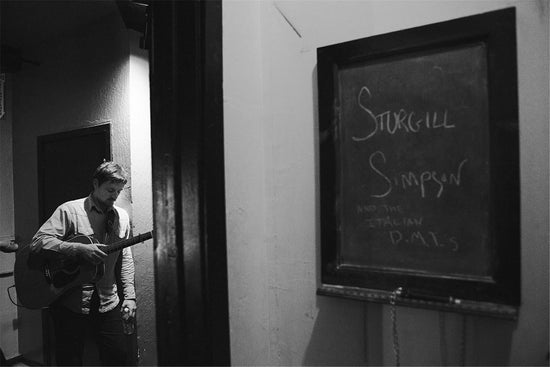 STURGILL
SIMPSON
AND THE
ITALIAN
D.M.T.s